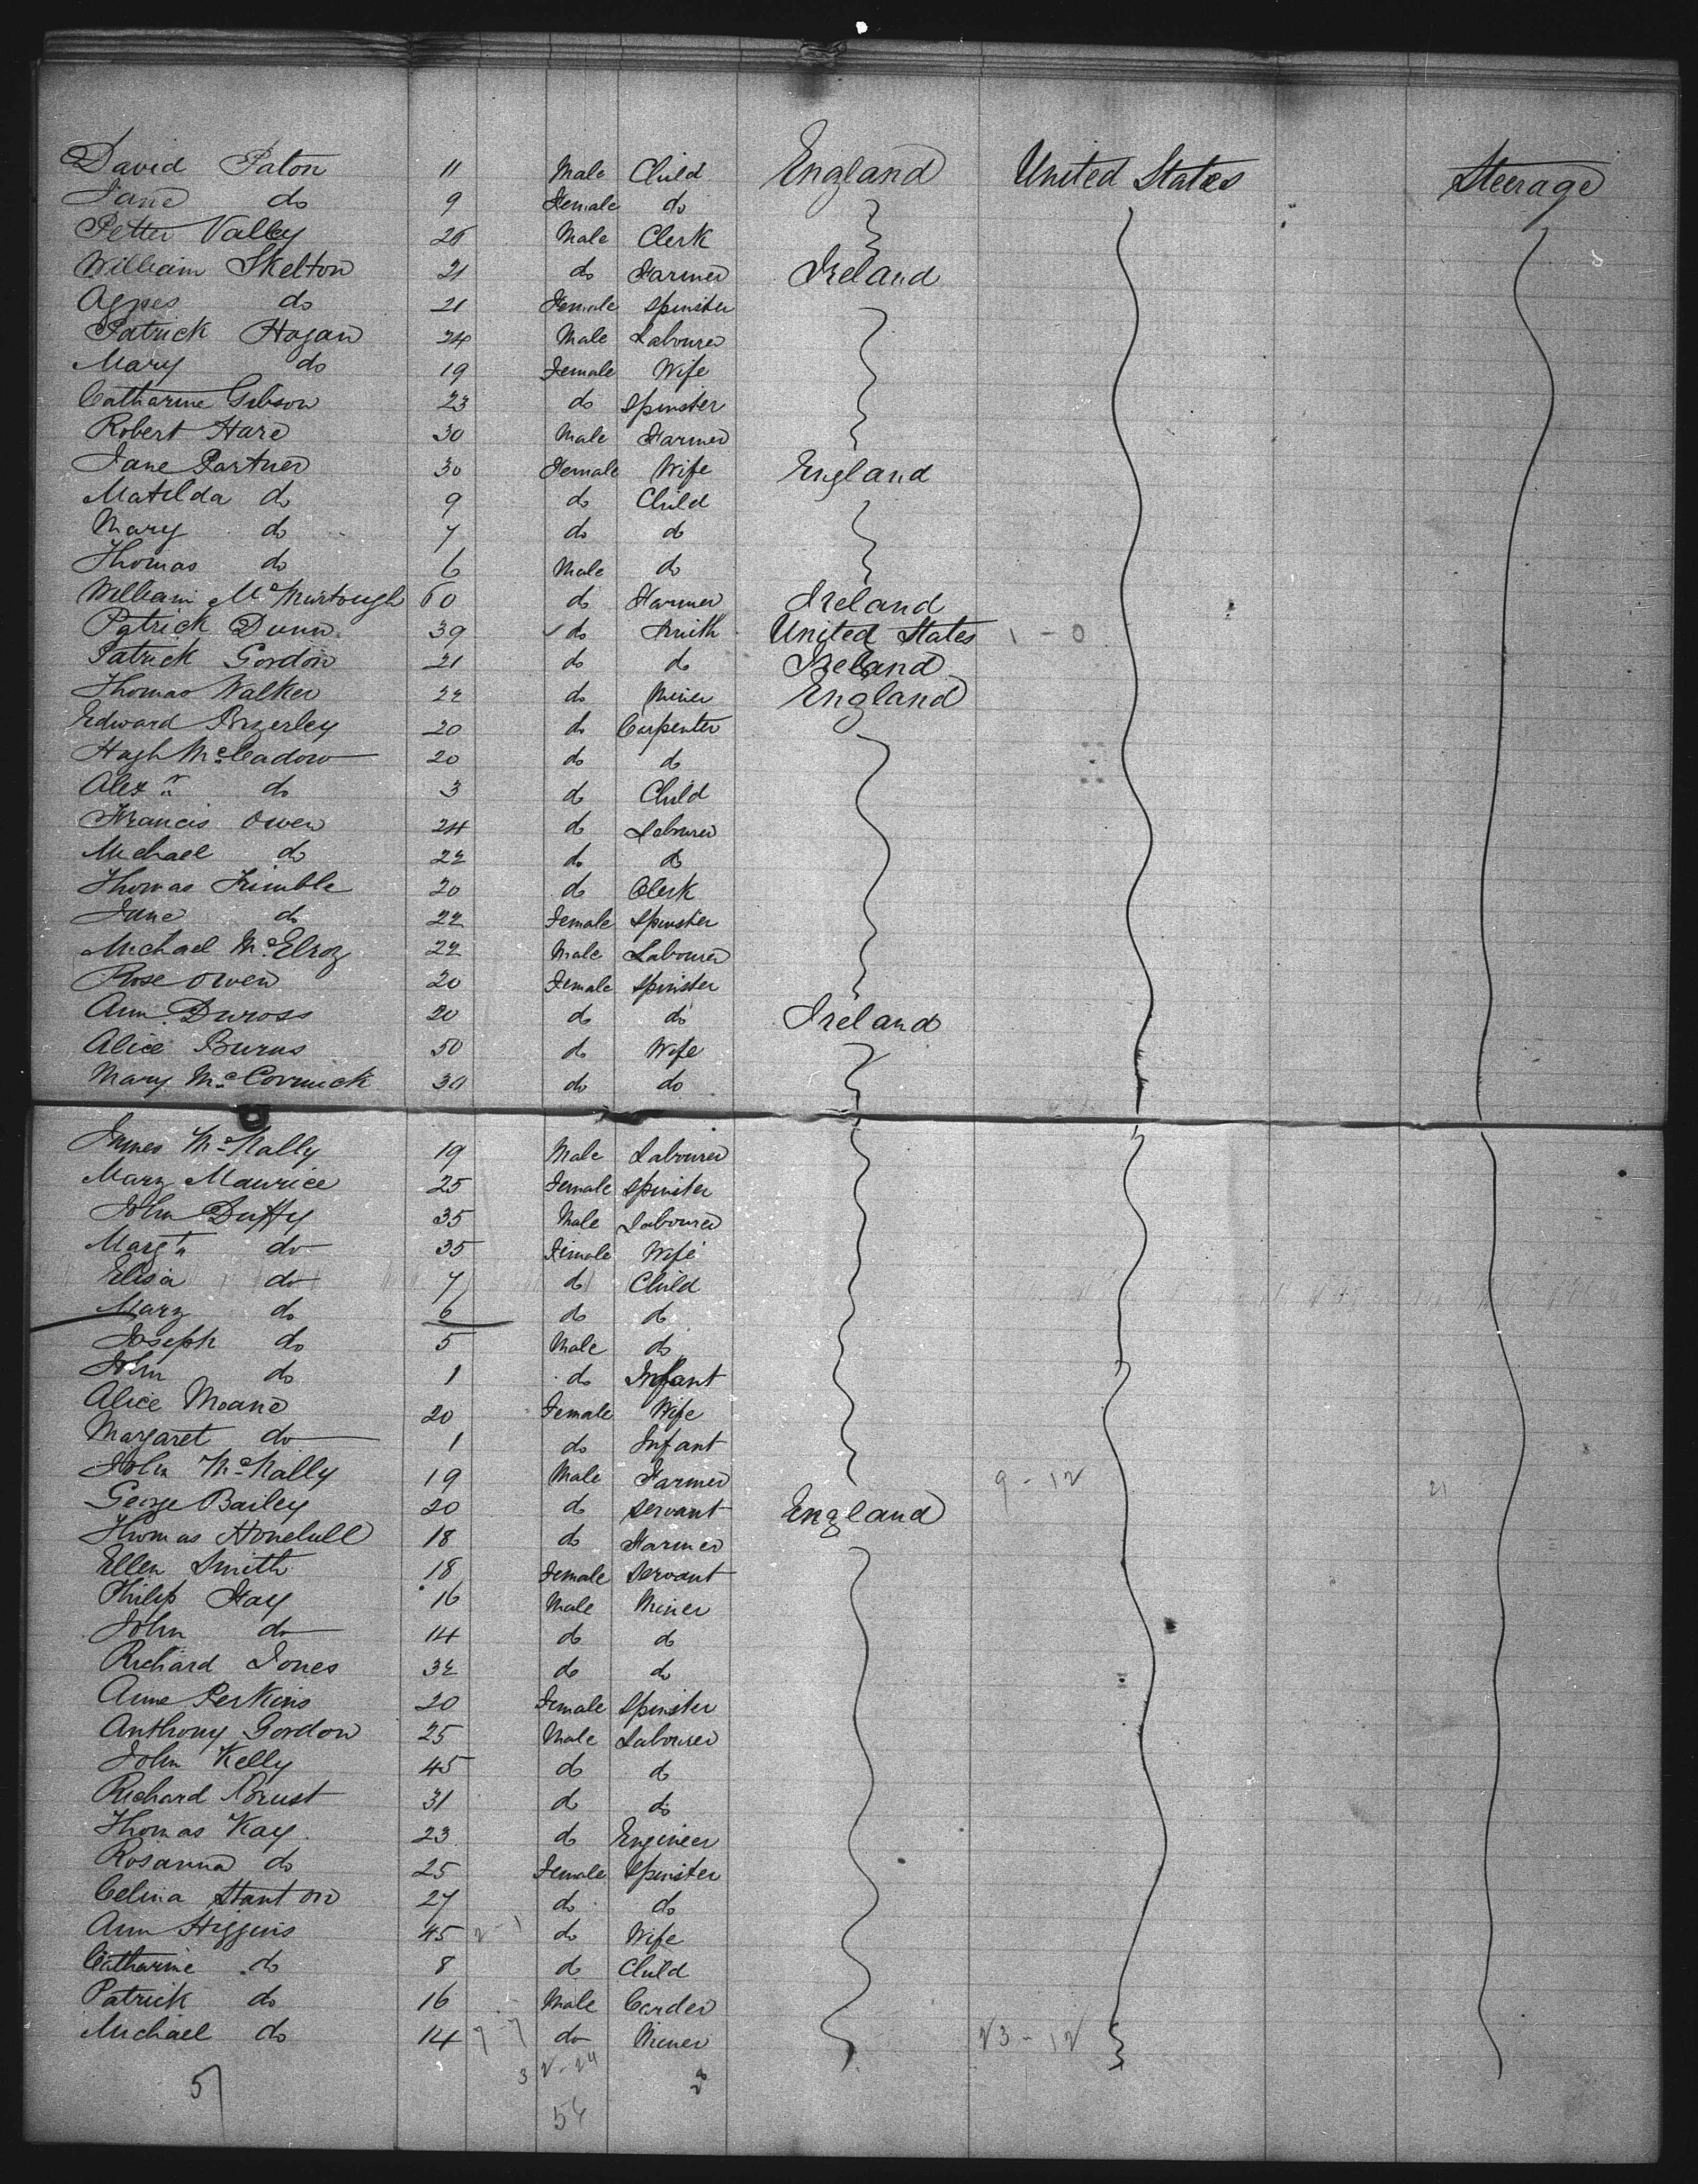 David Paton 11 Male Child England United States Steerage
Jane do 9 Female do
Petter Valley 26 Male Clerk
William Skelton 21 do Farmer Ireland
Agnes do 21 Female Spinster
Patrick Hogan 24 Male Labourer
Mary do 19 Female Wife
Catharine Gibson 23 do Spinster
Robert Hare 30 Male Farmer
Jane Partner 30 Female Wife England
Matilda do 9 do Child
Mary do 7 do do
Thomas do 6 Male do
William McMurtough 60 do Farmer Ireland
Patrick Dunn 39 do Smith United States 1 - 0
Patrick Gordon 21 do do Ireland
Thomas Walker 22 do Miner England
Edward 20 do Carpenter
Hugh McCeadow 20 do do
Alexr do 3 do Child
Francis Owen 24 do Labourer
Michael do 22 do do
Thomas Trimble 20 do Clerk
Jane do 22 Female Spinster
Michael McElroy 22 Male Labourer
Rose Owen 20 Female Spinster
Ann Duross 20 do do Ireland
Alice Burns 50 do Wife
Mary McCormick 30 do do
James McNally 19 Male Labourer
Mary Maurice 25 Female Spinster
John Duffy 35 Male Labourer
Margt do 35 Female Wife
Elisa do 7 do Child
Mary do 6 do do
Joseph do 5 Male do
John do 1 do Infant
Alice Moane 20 Female Wife
Margaret do 1 do Infant
John McNally 19 Male Farmer 9 - 12 21
George Bailey 20 do Servant England
Thomas Honelull 18 do Farmer
Ellen Smith 18 Female Servant
Philip Hay 16 Male Miner
John do 14 do do
Richard Jones 32 do do
Anne Perkins 20 Female Spinster
Anthony Gordon 25 Male Labourer
John Kelly 45 do do
Richard Brust 31 do do
Thomas Kay 23 do Engineer
Rosanna do 25 Female Spinster
Celina Stanton 27 do do
Ann Higgins 45 2-1 do Wife
Catharine do 8 do Child
Patrick do 16 Male Carder
Michael do 14 7-7 do Miner 23 - 12
57 3 2-24
56